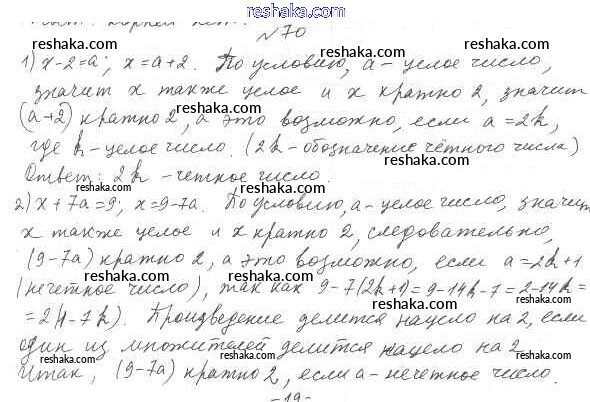 reshaka.ru
корней нет.
№70
1) x-2=a; x=a+2. По условию, a - целое число,
значит x также целое и x кратно 2, значит
(a+2) кратно 2, а это возможно, если a=2k,
где k - целое число. (2k - обозначение чётного числа)
Ответ: 2k - четное число.
2) x+7a=9; x=9-7a. По условию, a - целое число, значит
x также целое и x кратно 2, следовательно,
(9-7a) кратно 2, а это возможно, если a=2k+1
(нечетное число), так как 9-7(2k+1)=9-14k-7=2-14k=
=2(1-7k). Произведение делится нацело на 2, если
один из множителей делится нацело на 2.
Итак, (9-7a) кратно 2, если a - нечетное число.
-19-